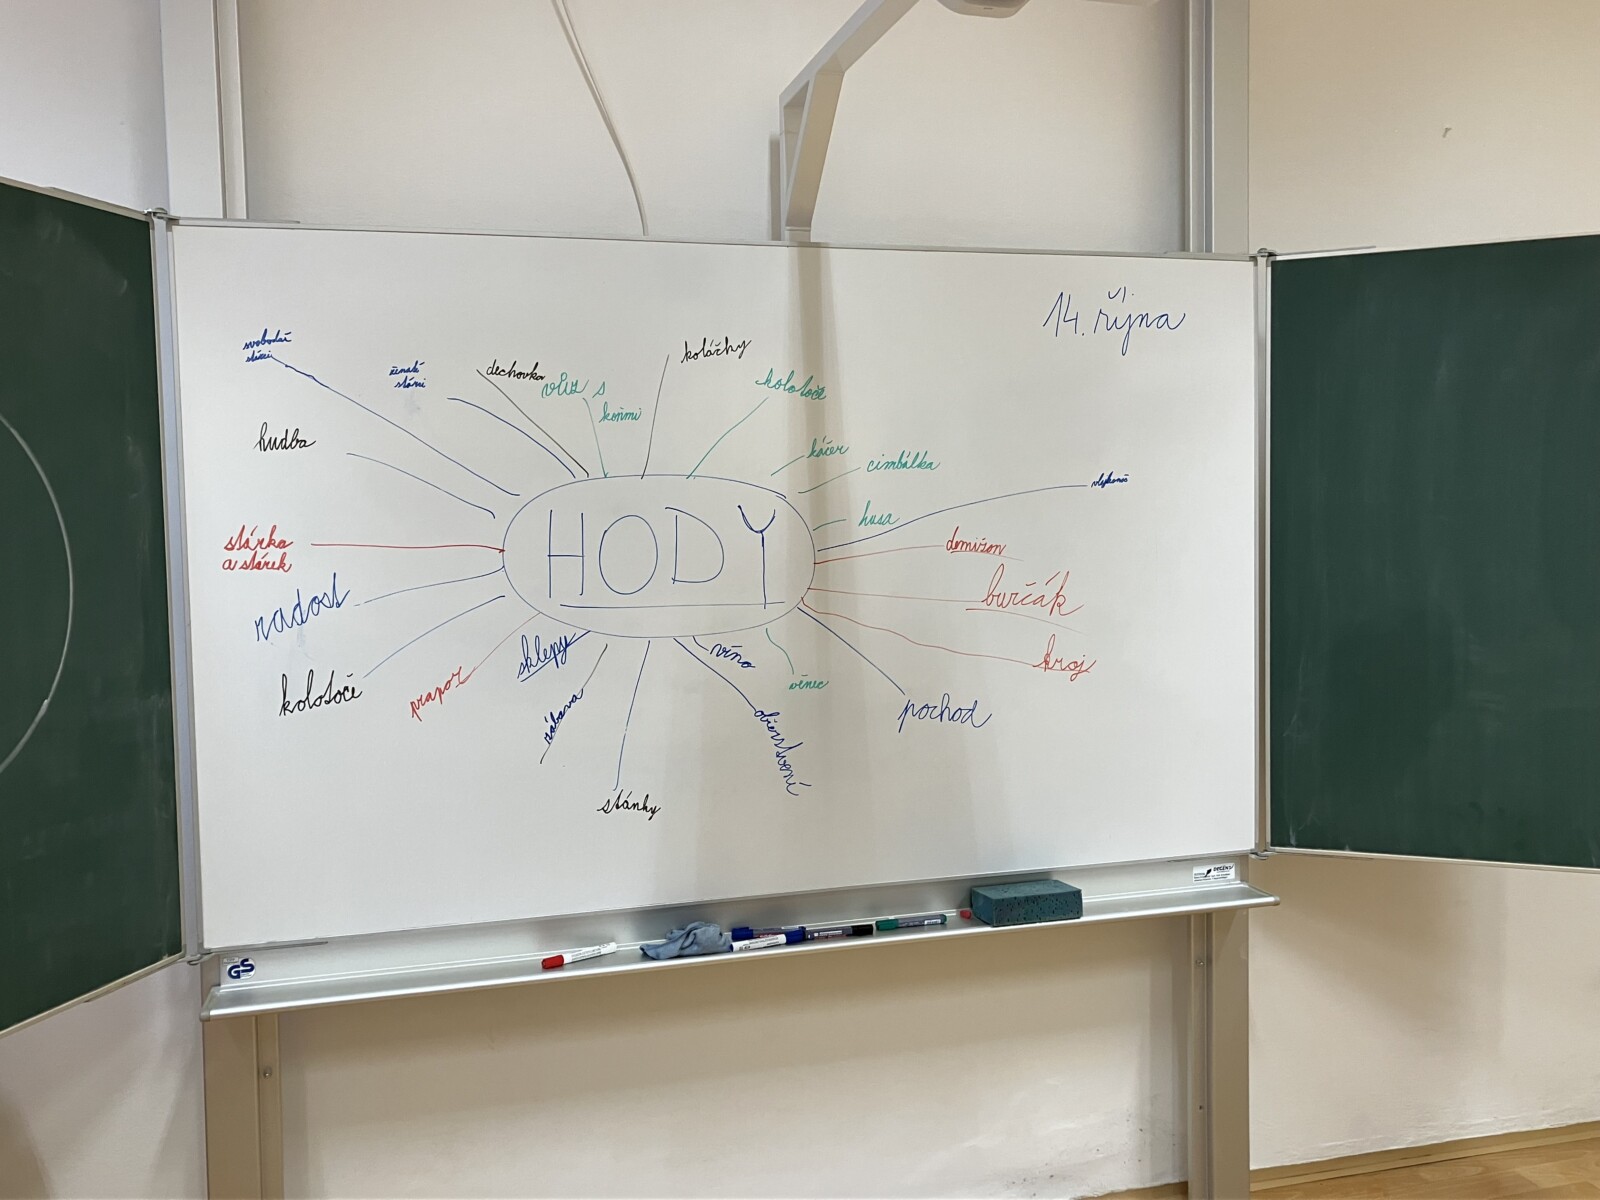 14. října
svobodní
stárci
ženatí
stárci
dechovka
vůz s
koňmi
koláčky
kolotoče
hudba
káčer
cimbálka
husa
HODY
stárka
a stárek
demižon
burčák
kroj
radost
kolotoče
prapor
sklepy
zábava
stánky
víno
občerstvení
věnec
pochod
GS